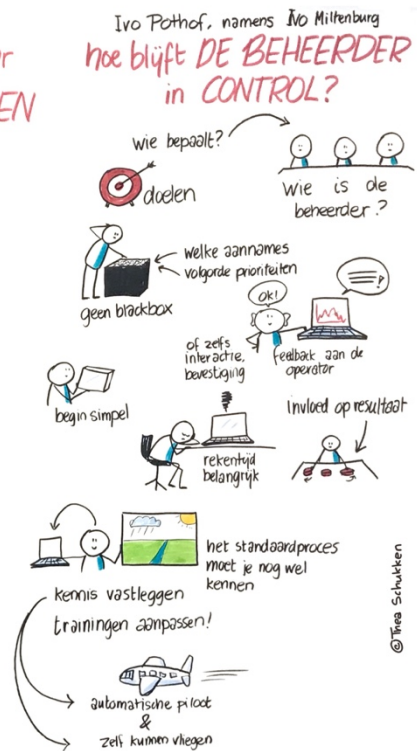 Ivo Pothof, namens Ivo Miltenburg
r
hoe blijft DE BEHEERDER
EN
in CONTROL?
wie bepaalt?
doelen
wie is de
beheerder?
welke aannames
volgorde prioriteiten
geen blackbox
OK!
of zelfs
interactie,
bevestiging
feedback aan de
operator
begin simpel
invloed op resultaat
rekentijd
belangrijk
het standaardproces
moet je nog wel
kennen
kennis vastleggen
trainingen aanpassen!
automatische piloot
&
zelf kunnen vliegen
©Thea Schukken